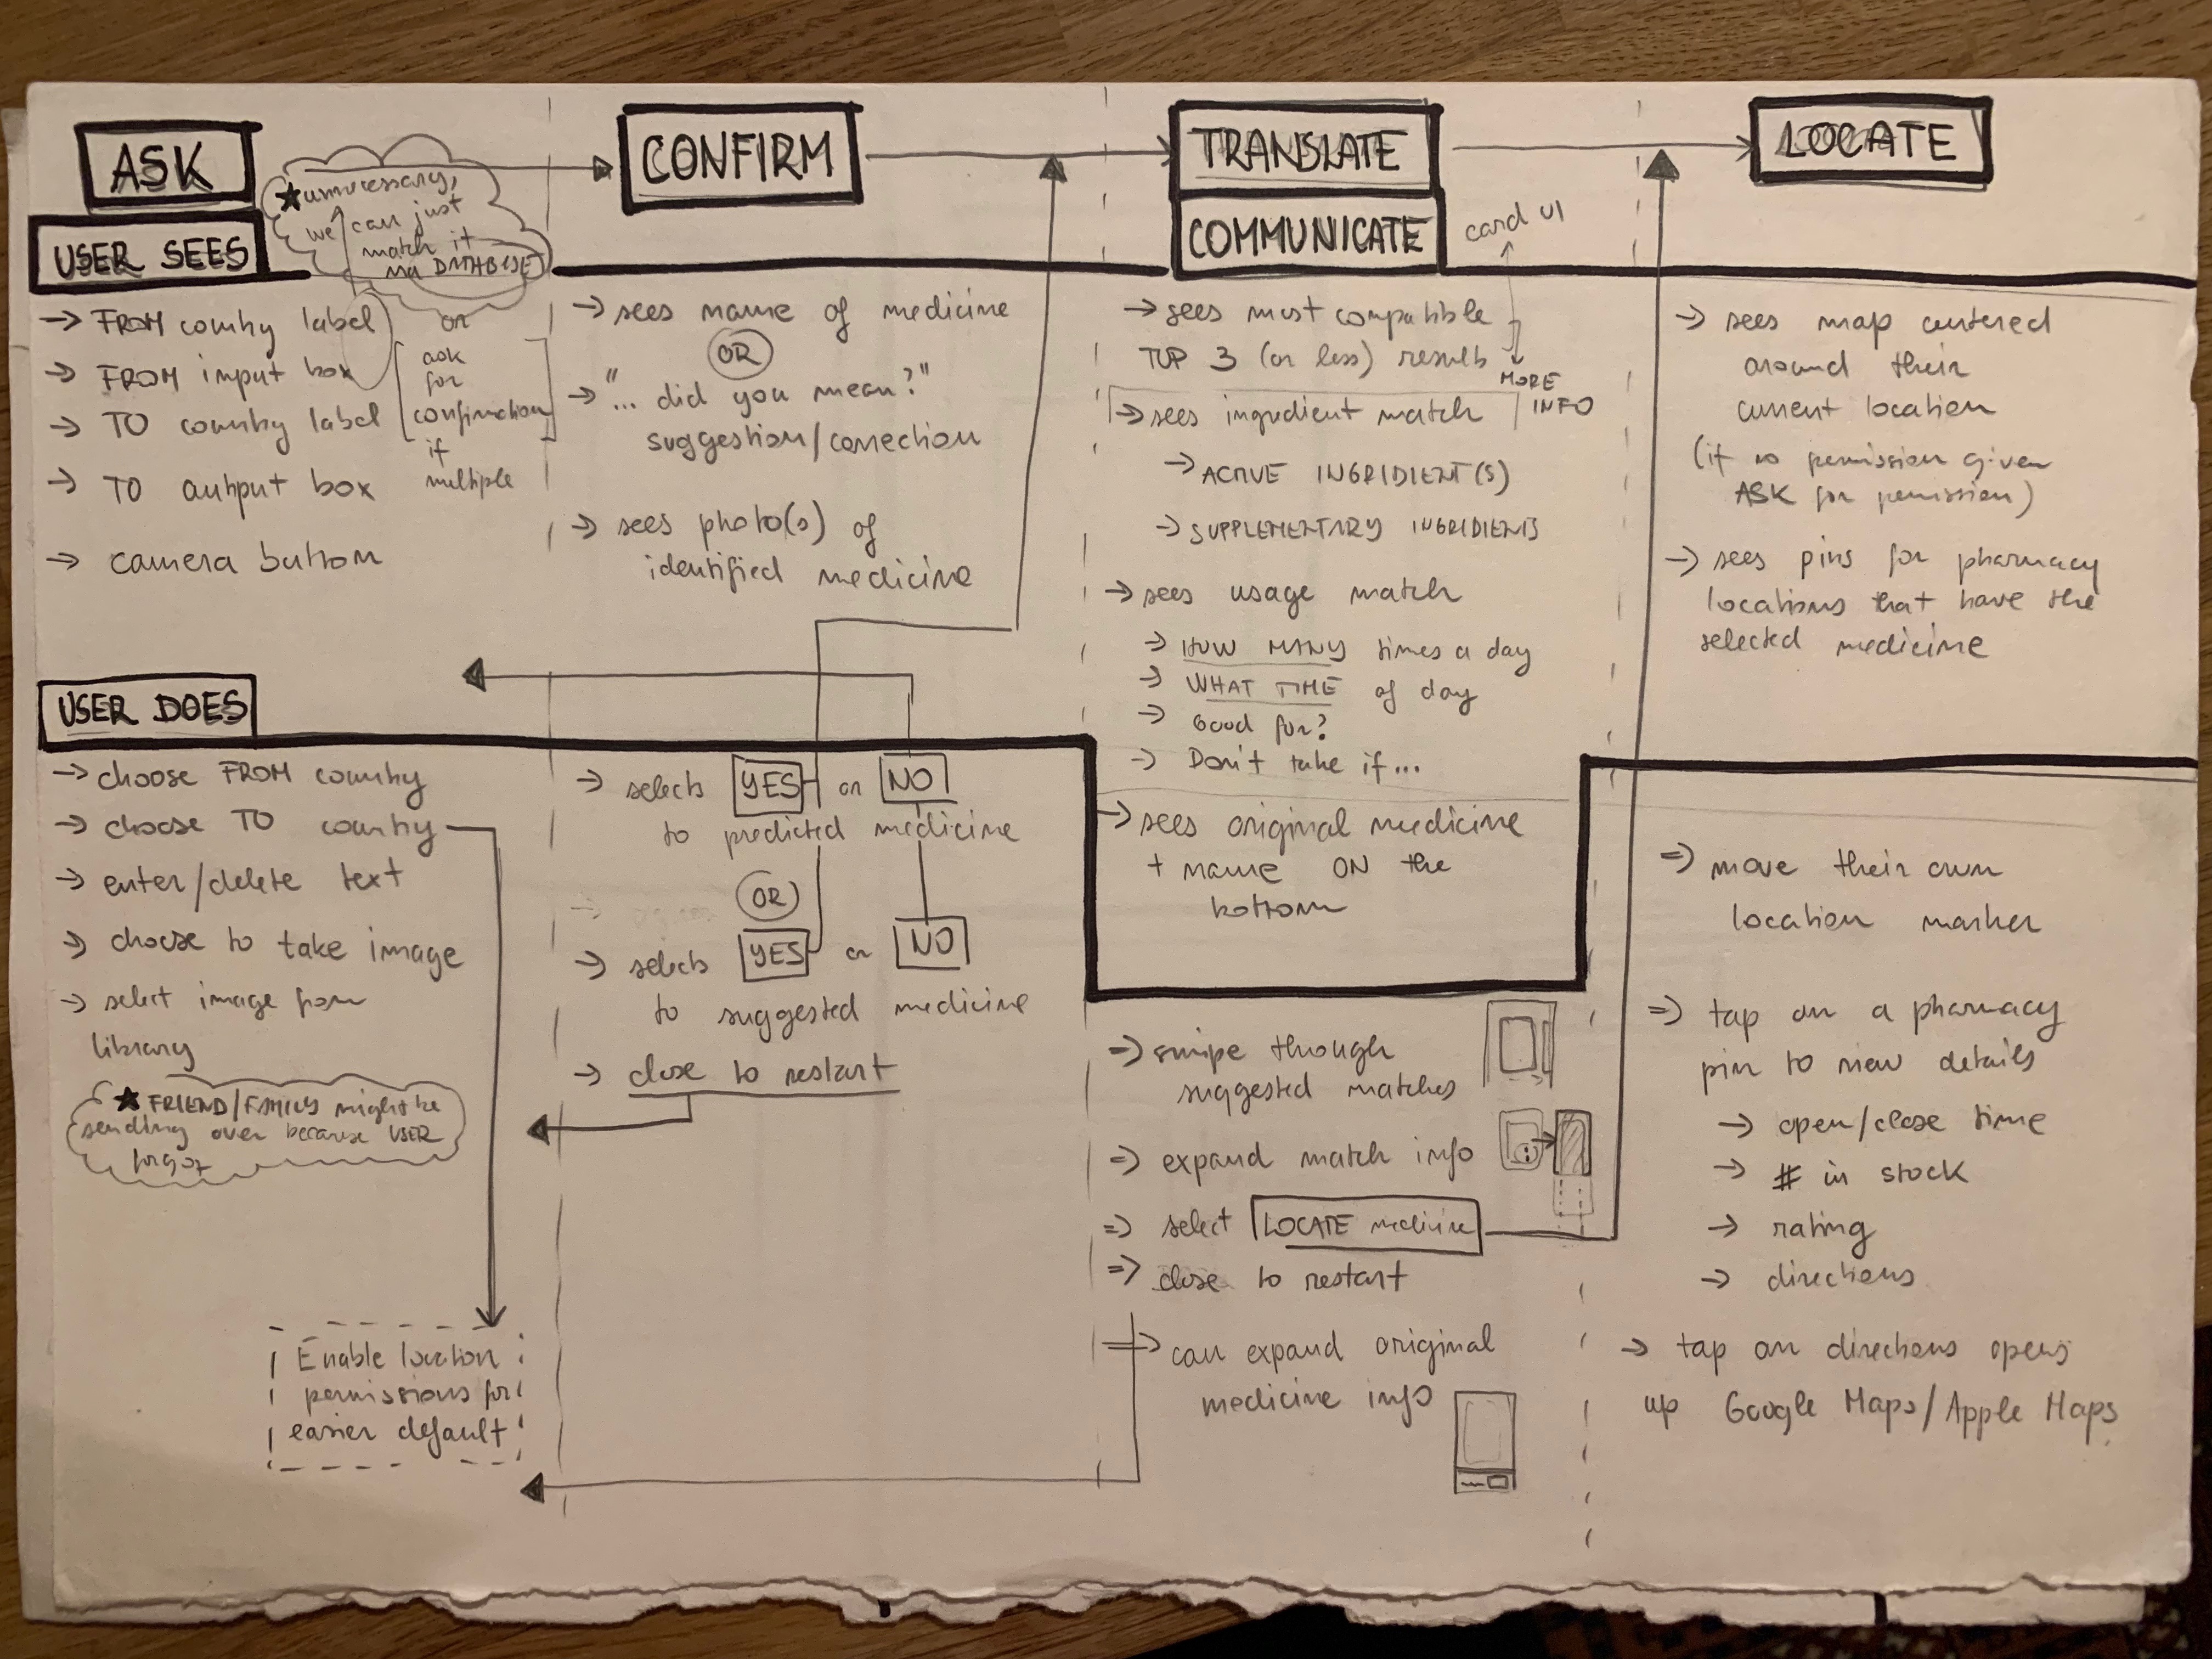 ASK
★ unnecessary,
we can just
match it
via DATABASE
CONFIRM
TRANSLATE
COMMUNICATE
card UI
LOCATE
USER SEES
→ FROM country label
→ FROM input box
→ TO country label
→ TO output box
→ camera button
or
ask
for
confirmation
if
multiple
→ sees name of medicine
OR
→ "... did you mean?"
suggestion/correction
→ sees photo(s) of
identified medicine
→ sees most compatible
TOP 3 (or less) results
MORE
INFO
→ sees ingredient match
→ ACTIVE INGRIDIENT(S)
→ SUPPLEMENTARY INGRIDIENTS
→ sees usage match
→ HOW MANY times a day
→ WHAT TIME of day
→ Good for?
→ Don't take if...
→ sees original medicine
+ name ON the
bottom
→ sees map centered
around their
current location
(if no permission given
ASK for permission)
→ sees pins for pharmacy
locations that have the
selected medicine
USER DOES
→ choose FROM country
→ choose TO country
→ enter/delete text
→ choose to take image
→ select image from
library
★ FRIEND/FAMILY might be
sending over because USER
forgot
Enable location
permissions for
easier default
→ selects YES or NO
to predicted medicine
OR
→ selects YES or NO
to suggested medicine
→ close to restart
⇒ swipe through
suggested matches
⇒ expand match info
⇒ select LOCATE medicine
⇒ close to restart
⇒ can expand original
medicine info
⇒ move their own
location marker
⇒ tap on a pharmacy
pin to view details
→ open/close time
→ # in stock
→ rating
→ directions
→ tap on directions opens
up Google Maps/Apple Maps